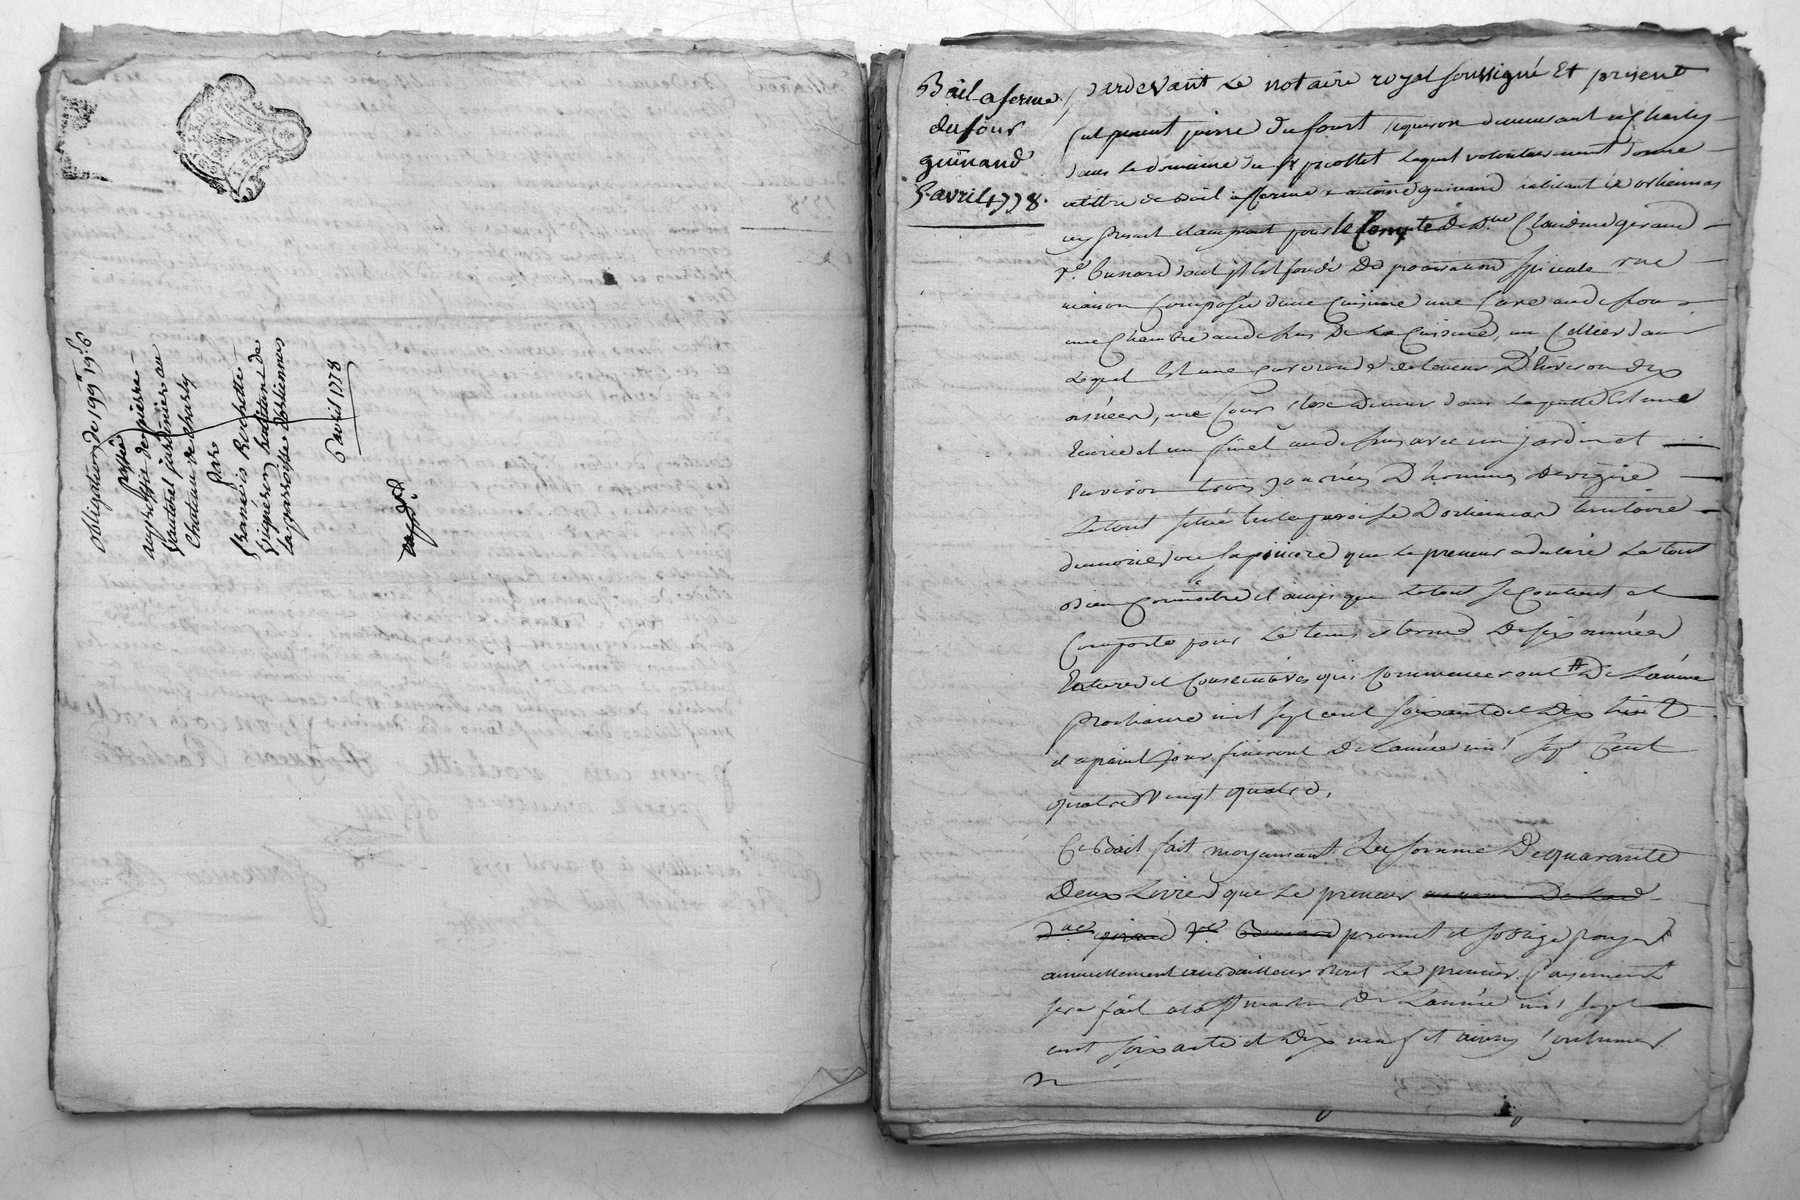 obligation de 199ᵗᵗ 19ˢ 6
passée
au proffit de pierre
Vautrel jardinier au
Chateau de charly
par
françois Rochette
Vigneron habitant de
la parroisse d'orliennas
6 avril 1778
Bail a ferme
du four
guinand
5 avril 1778.
Pardevant Le notaire royal soussigné Et present
fut present pierre du fourt vigneron demeurant a Charly
dans le domaine du Sr lequel volontairement donne
a titre de Bail afferme a antoine guinand habitant d'orliennas
icy present et acceptant pour le Compte de Dᵉ Claudine gerand
Vᵉ Bunard dont il Est fondé De procuration speciale une
maison Composée d'une Cuisine une Cave au dessous
une Chambre au dessus De La Cuisine, un Cellier dans
Lequel Est une cuve ronde de teneur D'Environ dix
asnées, une Cour close de murs dans Laquelle Est une
Ecurie et un finel au dessus avec un jardin et
Environ trois journées D'hommes de vigne
Le tout situé en la paroisse D'orliennas territoire
que Le preneur a declaré Le tout
Bien Connoitre et ainsy que Le tout se Contient et
Comporte pour Le tems et terme De six années
Entieres et Consecutives qui Commenceront # De L'année
prochaine mil sept cent soixante et Dix huit
et a pareil jour finiront De L'année mil sept Cent
quatre Vingt quatre.
Ce Bail fait moyennant La somme De quarante
Deux Livres que Le preneur
Dᵉ gerand Vᵉ Bunard promet et s'oblige payer
annuellement au Bailleur dont Le premier payement
sera fait a la St martin De L'année mil sept
cent soixante et Dix neuf et ainsy Continuer